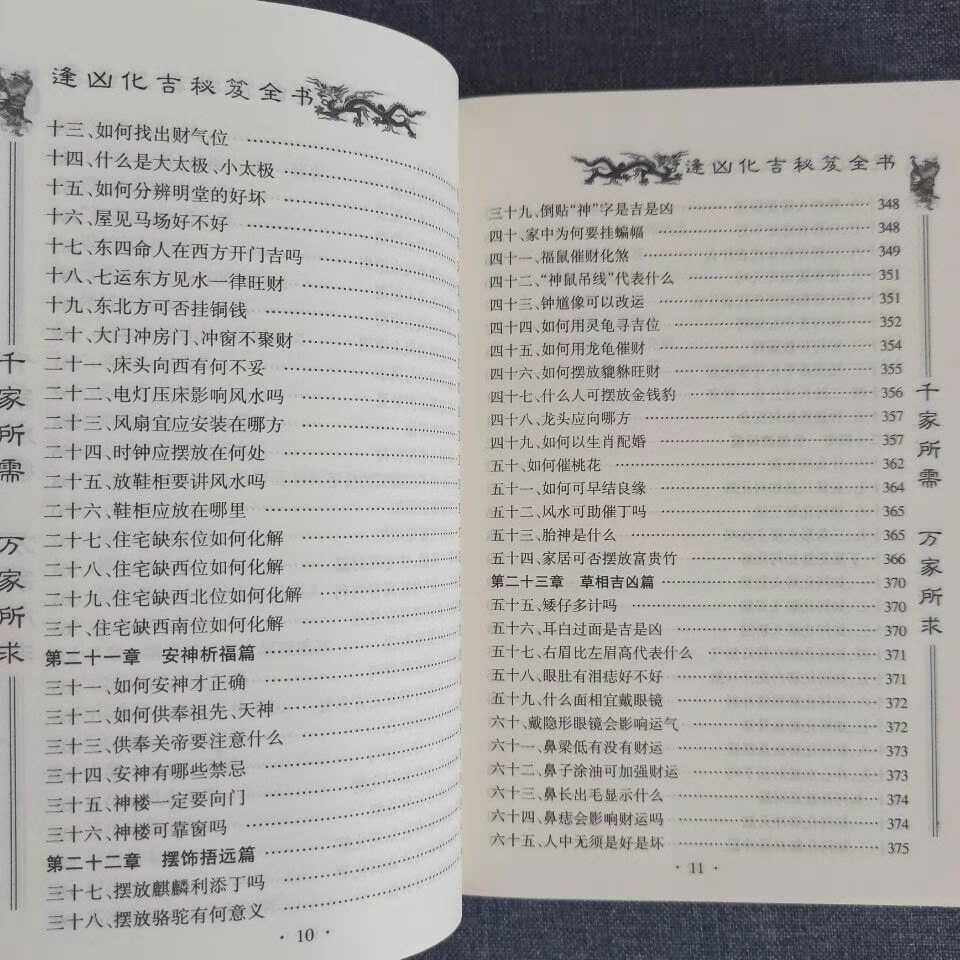 逢凶化吉秘笈全书
十三、如何找出财气位
十四、什么是大太极、小太极
十五、如何分辨明堂的好坏
十六、屋见马场好不好
十七、东四命人在西方开门吉吗
十八、七运东方见水一律旺财
十九、东北方可否挂铜钱
二十、大门冲房门、冲窗不聚财
二十一、床头向西有何不妥
二十二、电灯压床影响风水吗
二十三、风扇宜应安装在哪方
二十四、时钟应摆放在何处
二十五、放鞋柜要讲风水吗
二十六、鞋柜应放在哪里
二十七、住宅缺东位如何化解
二十八、住宅缺西位如何化解
二十九、住宅缺西北位如何化解
三十、住宅缺西南位如何化解
第二十一章 安神析福篇
三十一、如何安神才正确
三十二、如何供奉祖先、天神
三十三、供奉关帝要注意什么
三十四、安神有哪些禁忌
三十五、神楼一定要向门
三十六、神楼可靠窗吗
第二十二章 摆饰捂远篇
三十七、摆放麒麟利添丁吗
三十八、摆放骆驼有何意义
· 10 ·
千家所需 万家所求
逢凶化吉秘笈全书
三十九、倒贴“神”字是吉是凶 348
四十、家中为何要挂蝙蝠 348
四十一、福鼠催财化煞 349
四十二、“神鼠吊线”代表什么 351
四十三、钟馗像可以改运 351
四十四、如何用灵龟寻吉位 352
四十五、如何用龙龟催财 354
四十六、如何摆放貔貅旺财 355
四十七、什么人可摆放金钱豹 356
四十八、龙头应向哪方 357
四十九、如何以生肖配婚 357
五十、如何催桃花 362
五十一、如何可早结良缘 364
五十二、风水可助催丁吗 365
五十三、胎神是什么 365
五十四、家居可否摆放富贵竹 366
第二十三章 草相吉凶篇 370
五十五、矮仔多计吗 370
五十六、耳白过面是吉是凶 370
五十七、右眉比左眉高代表什么 371
五十八、眼肚有泪痣好不好 371
五十九、什么面相宜戴眼镜 372
六十、戴隐形眼镜会影响运气 372
六十一、鼻梁低有没有财运 373
六十二、鼻子涂油可加强财运 373
六十三、鼻长出毛显示什么 374
六十四、鼻痣会影响财运吗 374
六十五、人中无须是好是坏 375
· 11 ·
千家所需 万家所求